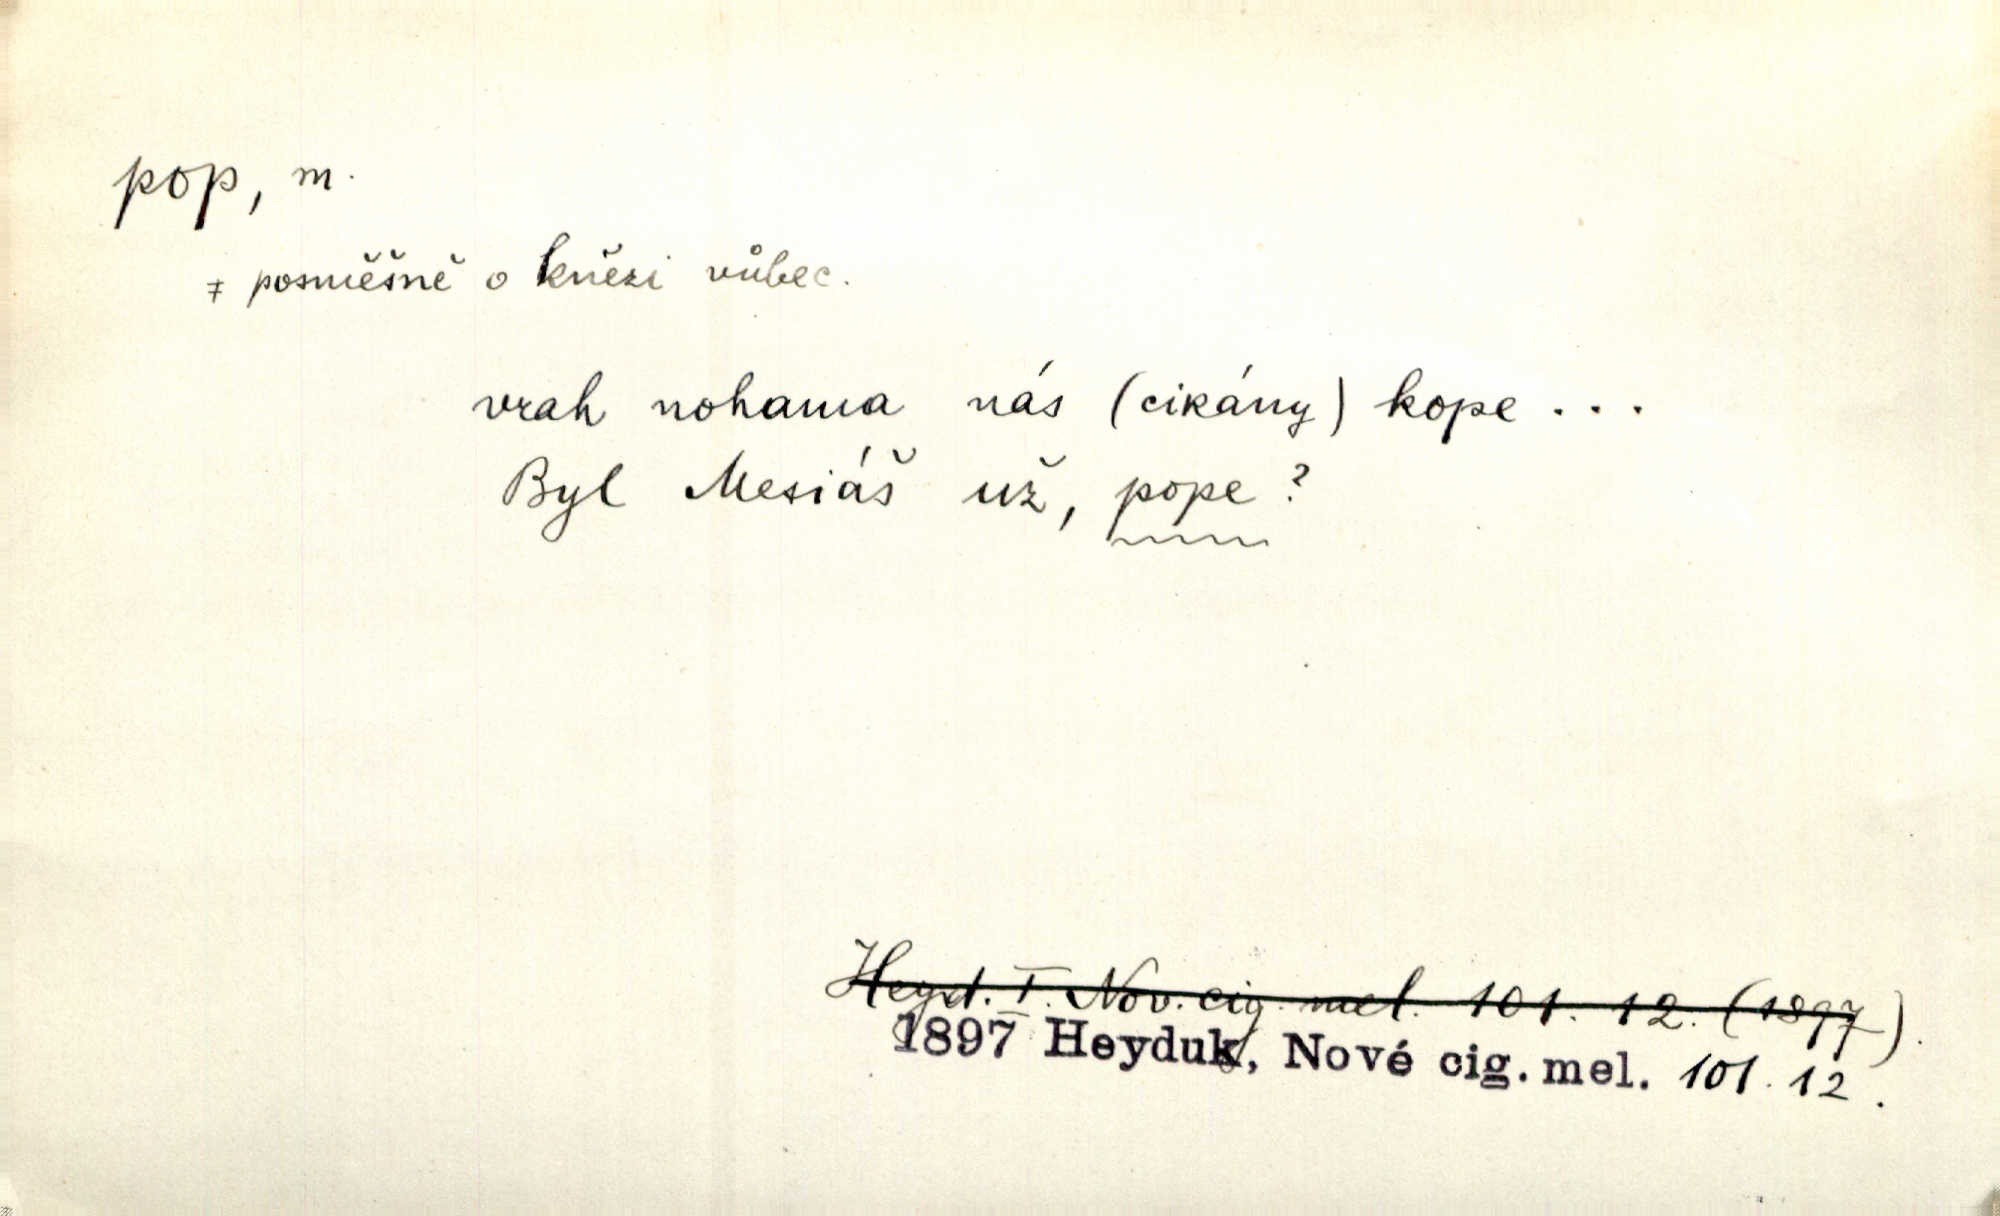 pop, m.
= posměšně o knězi vůbec.
vrah nohama nás (cikány) kope ...
Byl Mesiáš už, pope?
Heyd. I. Nov. cig. mel. 101. 12. (1897).
1897 Heyduk, Nové cig. mel. 101. 12.